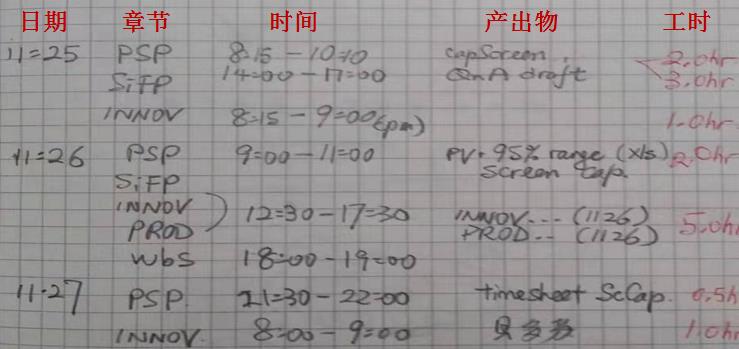 日期 章节 时间 产出物 工时
11=25 PSP 8:15 - 10:10 capScreen, 2.0hr
SiFP 14=00 - 17=00 QnA draft 3.0hr
INNOV 8=15 - 9=00(pm) 1.0hr
11=26 PSP 9=00 - 11=00 PV. 95% range (xls) 2.0hr
SiFP screen cap.
INNOV 12=30 - 17=30 INNOV... (1126) 5.0hr
PROD PROD... (1126)
WbS 18=00 - 19=00
11.27 PSP. 21=30 - 22=00 timesheet ScCap. 0.5h
INNOV. 8=00 - 9=00 1.0hr